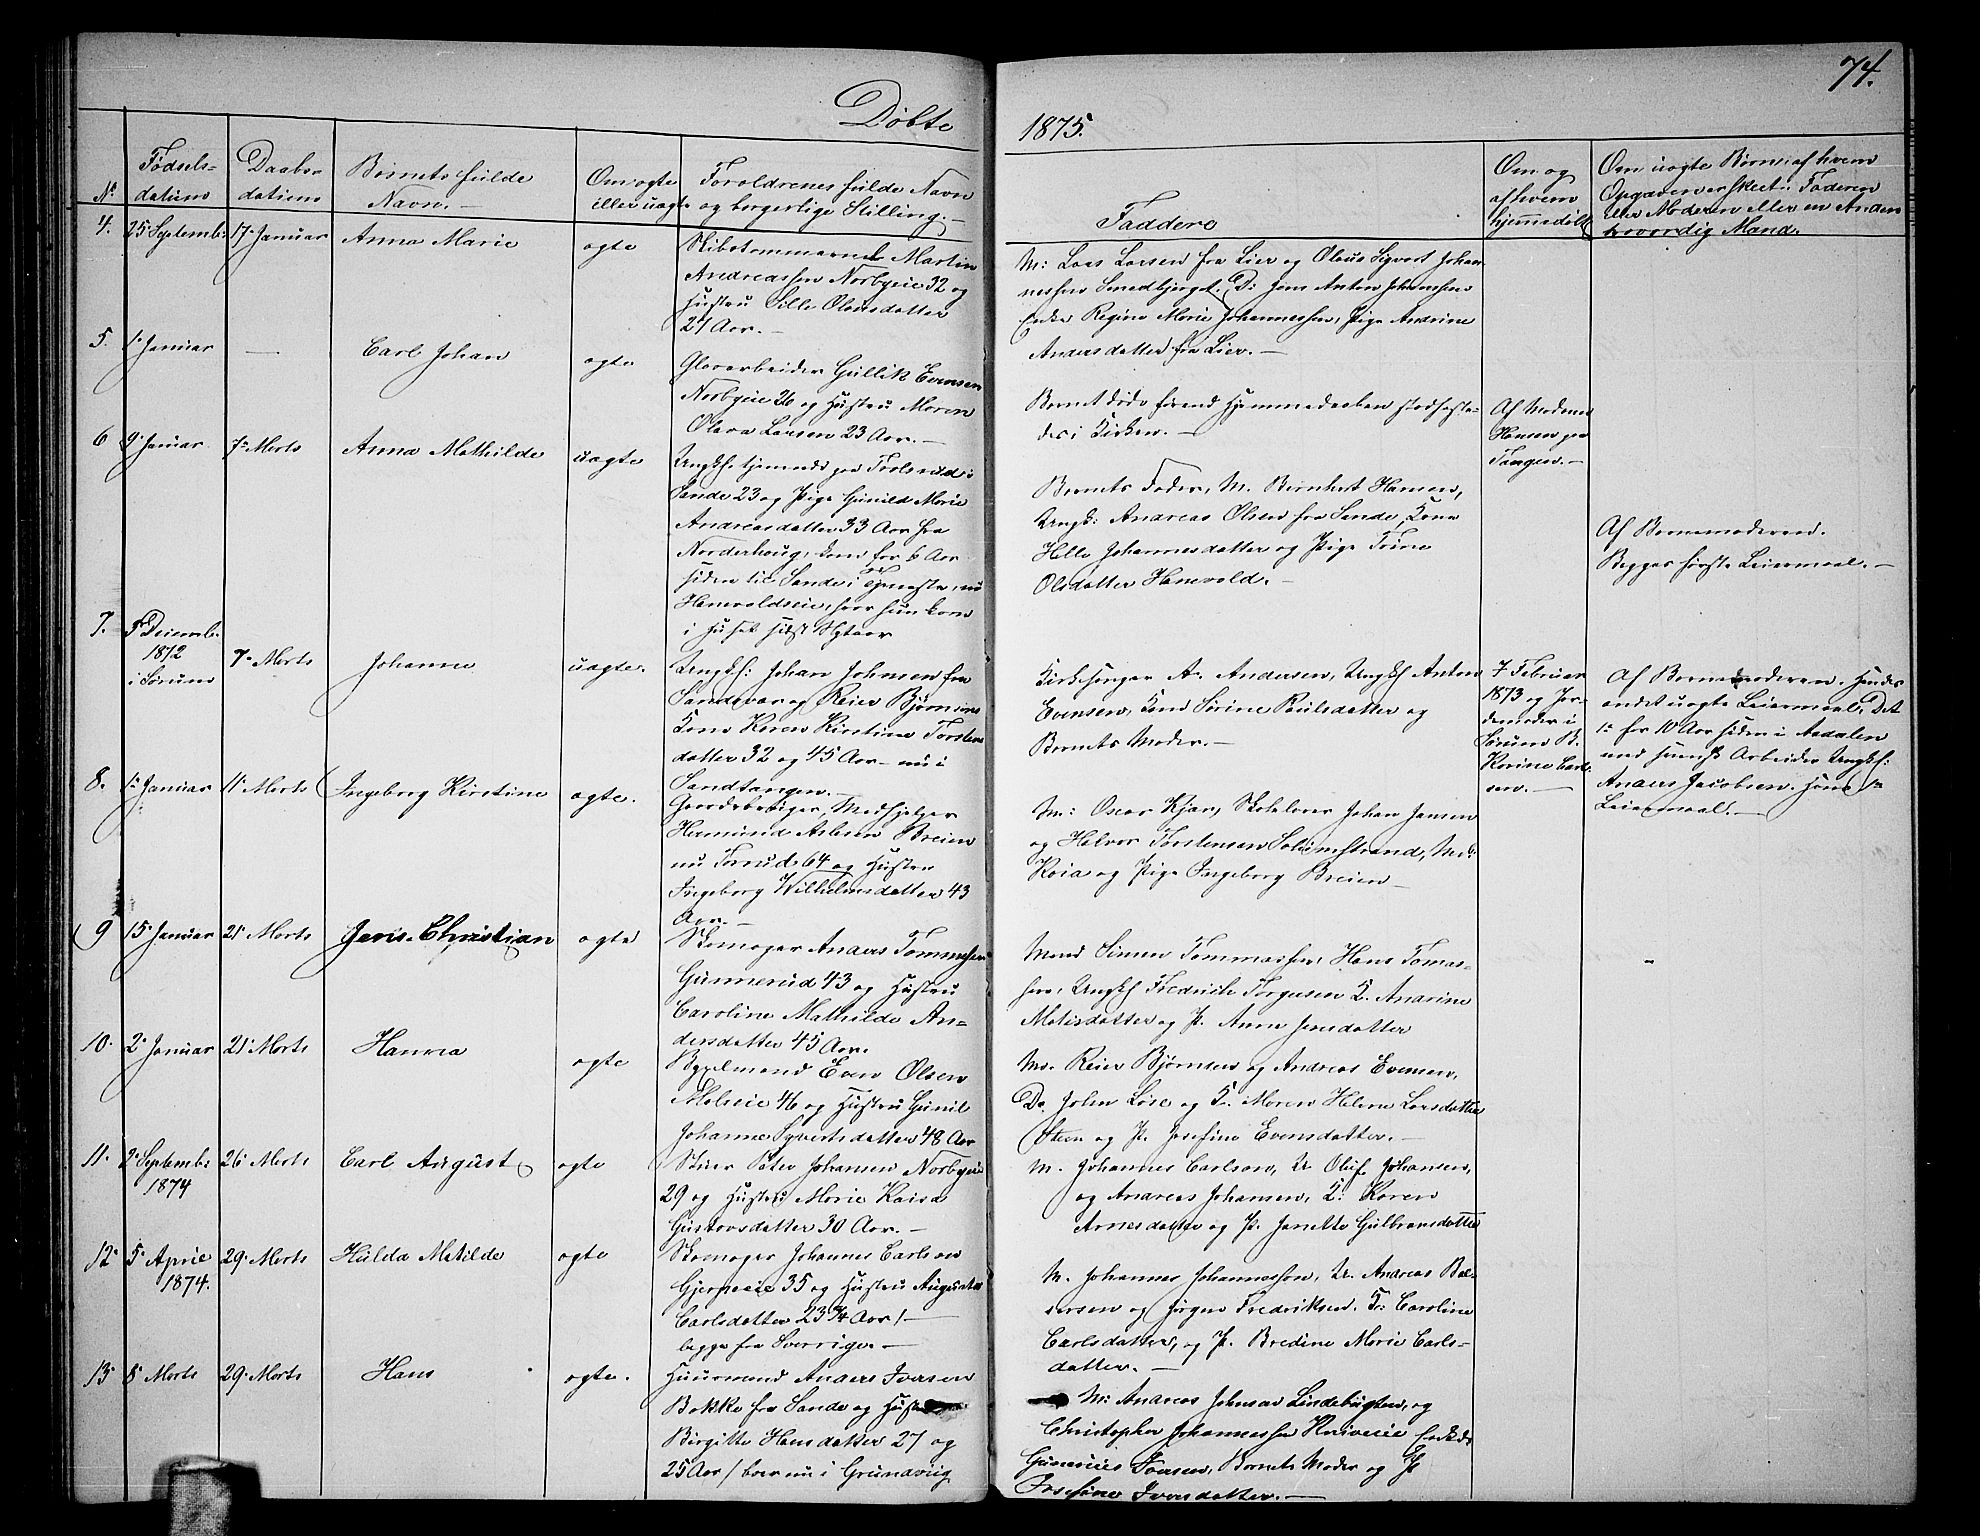 74.
Døbte
1875.
No
Fødsels-
datum
Daabs-
datum
Barnets fulde
Navn.
Om ægte
eller uægte
Forældrenes fulde Navn
og borgerlige Stilling.
Faddere
Om og
af hvem
hjemmedøbt
Om uægte Børn: af hvem
Opgaven er skeet: Faderen
eller Moderen eller en Anden
troværdig Mand.
4. 25 Septemb: 17 Januar Anna Marie ægte
Skibstømmermand Martin
Andreassen Norbyeie 32 og
Hustru Sille Olavsdatter
27 Aar.
M: Lars Larsen fra Lier og Olaus Sigvart Johan-
nessen Smedbjerget. D: Jens Anton Johannsens
Enke Regine Marie Johannessen, Pige Andrine
Andersdatter fra Lier.
5. 1 Januar — Carl Johan ægte
Glasarbeider Gullik Evensen
Norbyeie 26 og Hustru Maren
Olava Larsen 23 Aar.
Barnet døde førend Hjemmedaaben stadfæste-
des i Kirken.
Af Madame
Hansen paa
Tangen.
6 9 Januar 7 Marts Anna Mathilde uægte
Ungkf. tjenende paa
Sande 23 og Pige Gunild Marie
Andreasdatter 33 Aar fra
Norderhoug, kom for 6 Aar
siden til Sande i Tjeneste, nu
Hanevoldseie, hvor hun kom
i Huset sidst Nytaar
Barnets Fader, M. Bernhart Hansen,
Ungk: Andreas Olsen fra Sande, Kone
Helle Johannesdatter og Pige Trine
Olsdatter Hanevold.
Af Barnemoderen.
Begges første Leiermaal.
7. 5 Decemb.
1872
i Sørum
7 Marts Johanne uægte.
Ungkf: Johan Johnsen fra
Sandsvær og Reier Bjørnsens
Kone Karen Kirstine Torstens-
datter 32 og 45 Aar — nu i
Sandtangen.
Kirkesanger A. Andersen, Ungkf Anton
Evensen, Kone Sørine Paulsdatter og
Barnets Moder.
7 Februar
1873 af Jor-
demoder i
Sørum B.
Karine Carl-
sen.
Af Barnemoderen. Hendes
andet uægte Leiermaal. Det
1te for 10 Aar siden i Aadalen
med svensk Arbeider Ungkf:
Anders Jacobsen. Hans 1te
Leiermaal.
8. 1 Januar 11 Marts Ingeborg Kirstine ægte.
Gaardbruger, Medhjelper
Hermund Breien
nu Forrud 64 og Hustru
Ingeborg Wilhelmsdatter 43
Aar.
M: Oscar Kjær, Skolelærer Johan Jansen
og Halvor Torstensen Holmstrand, Md:
Kaia og Pige Ingeborg Breien
9 15 Januar 21 Marts Jens Christian ægte
Skomager Anders Tommesen
Gunnerud 43 og Hustru
Caroline Mathilde An-
dersdatter 45 Aar.
Mænd Simen Tommassen, Hans Tomas-
sen, Ungkf Fredrik Torgersen K. Anarine
Matisdatter og P. Anne Jensdatter
10. 2 Januar 21 Marts Hanna ægte
Bygselmand Even Olsen
46 og Hustru Gunil
Johanne Syvertsdatter 48 Aar
M. Reier Bjørnsen og Andreas Evensen,
D. John Løse og K. Maren Helene Larsdatter
Steen og P. Josefine Evensdatter.
11. 2 Septemb:
1874
26 Marts Carl August ægte
Peter Johansen Norbyeie
29 og Hustru Marie Kaisa
Gustavsdatter 30 Aar.
M. Johannes Carlson, U. Oluf Johansen,
og Andreas Johansen, K: Karen
Arnesdatter og P. Janette Gulbransdatter
12 5 April
1874.
29. Marts Hulda Matilde ægte
Skomager Johannes Carlson
Gjerpeeie 35 og Hustru Augusta
Carlsdatter 23 3/4 Aar /
begge fra Sverrige.
M. Johannes Johannessen, U. Andreas
og Jørgen Fredriksen. K: Caroline
Carlsdatter, og P. Bredine Marie Carls-
datter.
13 8 Marts 29. Marts Hans ægte.
Huusmand Anders Iversen
Bakke fra Sande og Hustru
Birgitte Hansdatter 27 og
25 Aar / boer nu i Grundvig
M: Andreas Johnsen Lindebugten, og
Christopher Johannessen
Gunerius Iversen, Barnets Moder og P
Josefine Iversdatter.